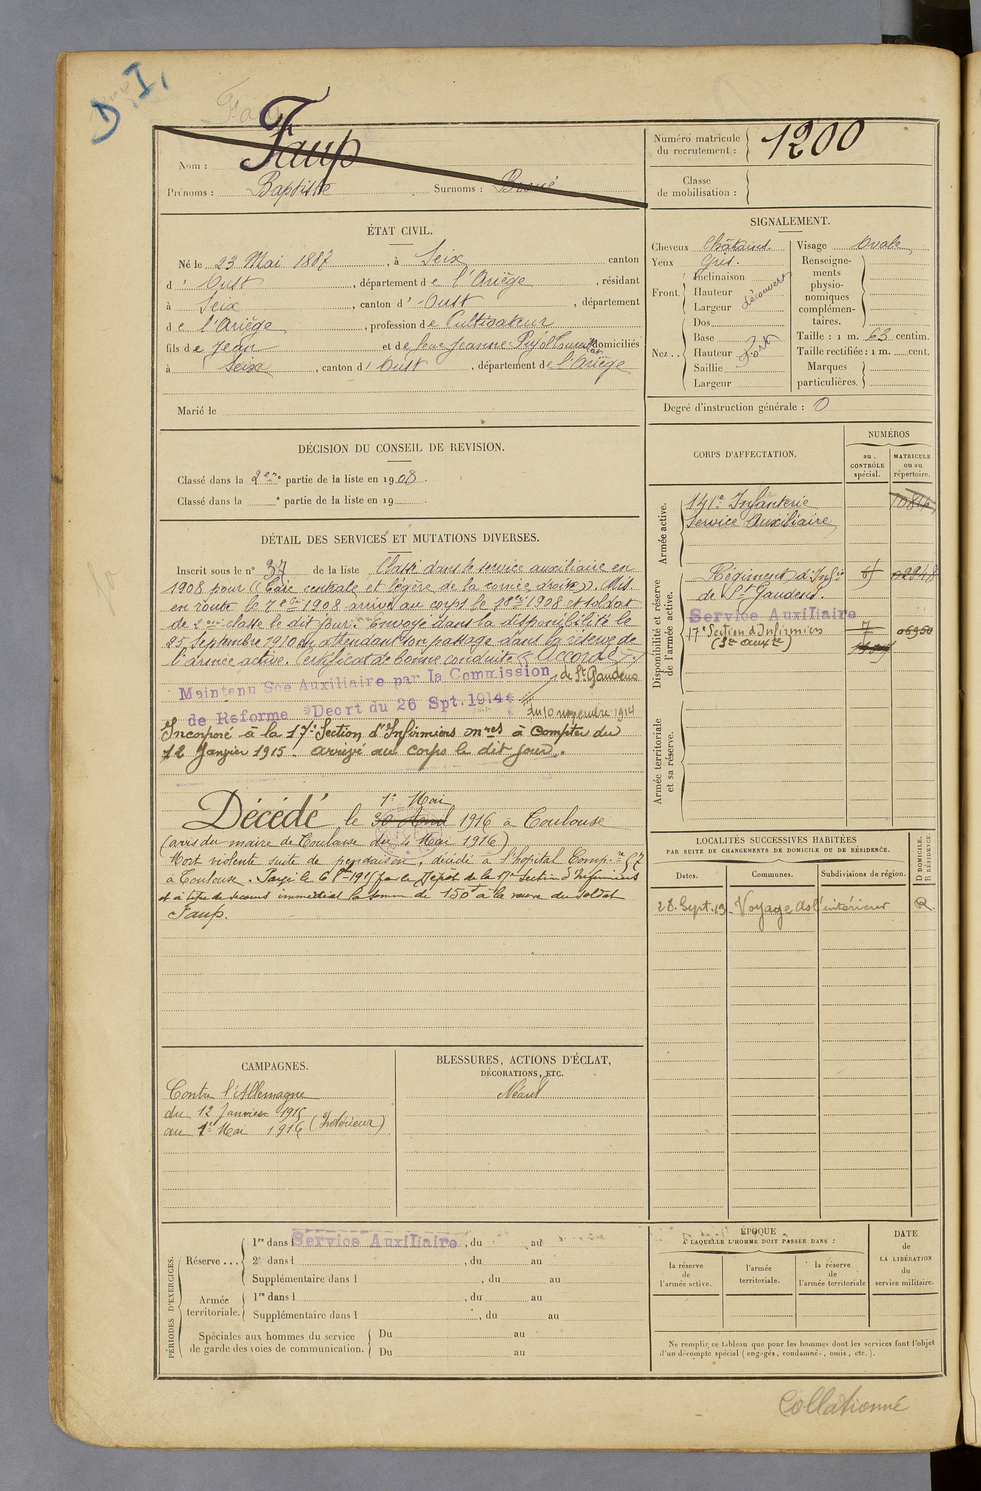 D.I.
Nom : Faup
Prénoms : Baptiste Surnoms :
Numéro matricule du recrutement : 1200
Classe de mobilisation :
ÉTAT CIVIL.
Né le 23 Mai 1887, à Seix canton
d'Oust, département de l'Ariège, résidant
à Seix, canton d'Oust, département
de l'Ariège, profession de Cultivateur
fils de Jean et de feue Jeanne domiciliés
à Seix, canton d'Oust, département de l'Ariège
Marié le
SIGNALEMENT.
Cheveux Châtains
Yeux Gris.
Front Inclinaison
Hauteur découvert
Largeur
Nez Dos
Base
Hauteur fort
Saillie
Largeur
Visage Ovale
Renseignements physionomiques complémentaires.
Taille : 1 m. 63 centim.
Taille rectifiée : 1 m. cent.
Marques particulières.
Degré d'instruction générale : 0
DÉCISION DU CONSEIL DE REVISION.
Classé dans la 2e partie de la liste en 1908.
Classé dans la e partie de la liste en 19
DÉTAIL DES SERVICES ET MUTATIONS DIVERSES.
Inscrit sous le n° 37 de la liste Classé dans le service auxiliaire en
1908 pour "Taie centrale et légère de la cornée droite". Mis
en route le 1908 arrivé au corps le 1908 et soldat
de 2me classe le dit jour. Envoyé dans la disponibilité le
25 Septembre 1910 en attendant son passage dans la réserve de
l'armée active. Certificat de bonne conduite "Accordé".
Maintenu Sce Auxiliaire par la Commission de St Gaudens
de Reforme Decrt du 26 Spt. 1914 du 10 novembre 1914
Incorporé à la 17e Section d'Infirmiers mres à compter du
12 Janvier 1915 arrivé au corps le dit jour.
1er Mai
Décédé le 30 Avril 1916 à Toulouse
(avis du maire de Toulouse du 4 Mai 1916)
Mort violente suite de pendaison, décédé à l'hôpital Comp.re 57
à Toulouse. Payé le par le Dépôt de la 17e Section d'Infirmiers
et à titre de secours immédiat la somme de 150f à la veuve du soldat
Faup.
CORPS D'AFFECTATION.
NUMÉROS
au CONTRÔLE spécial.
MATRICULE ou au répertoire.
Armée active.
141e Infanterie
Service Auxiliaire
Disponibilité et réserve de l'armée active.
Régiment d'Infie
de St Gaudens.
Service Auxiliaire
17e Section d'Infirmiers
(Sce auxre)
Armée territoriale et sa réserve.
LOCALITÉS SUCCESSIVES HABITÉES
PAR SUITE DE CHANGEMENTS DE DOMICILE OU DE RÉSIDENCE.
Dates. Communes. Subdivisions de région. D DOMICILE. R RÉSIDENCE.
28. Sept. 13 Voyage ds l'intérieur R.
CAMPAGNES.
Contre l'Allemagne
du 12 Janvier 1915
au 1er Mai 1916 (Intérieur)
BLESSURES, ACTIONS D'ÉCLAT,
DÉCORATIONS, ETC.
Néant
PÉRIODES D'EXERCICES.
Réserve... 1re dans l Service Auxiliaire, du au
2e dans l , du au
Supplémentaire dans l , du au
Armée territoriale. 1re dans l , du au
Supplémentaire dans l , du au
Spéciales aux hommes du service de garde des voies de communication. Du au
Du au
ÉPOQUE
A LAQUELLE L'HOMME DOIT PASSER DANS :
la réserve de l'armée active.
l'armée territoriale.
la réserve de l'armée territoriale
DATE de LA LIBÉRATION du service militaire.
Ne remplir ce tableau que pour les hommes dont les services font l'objet
d'un décompte spécial (engagés, condamnés, omis, etc.).
Collationné